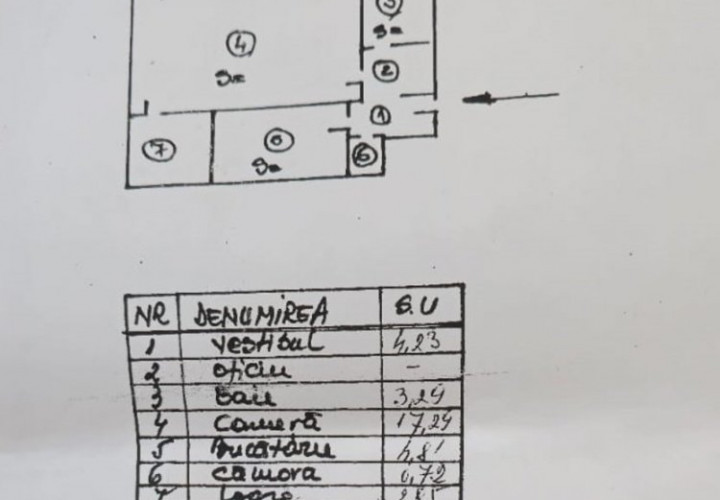 3
S=
4
2
S=
1
7
6
S=
6
NR DENUMIREA S.U
1 vestibul 4,23
2 oficiu -
3 Baie 3,29
4 Cameră 17,24
5 Bucătărie 4,81
6 Camora 0,72
7